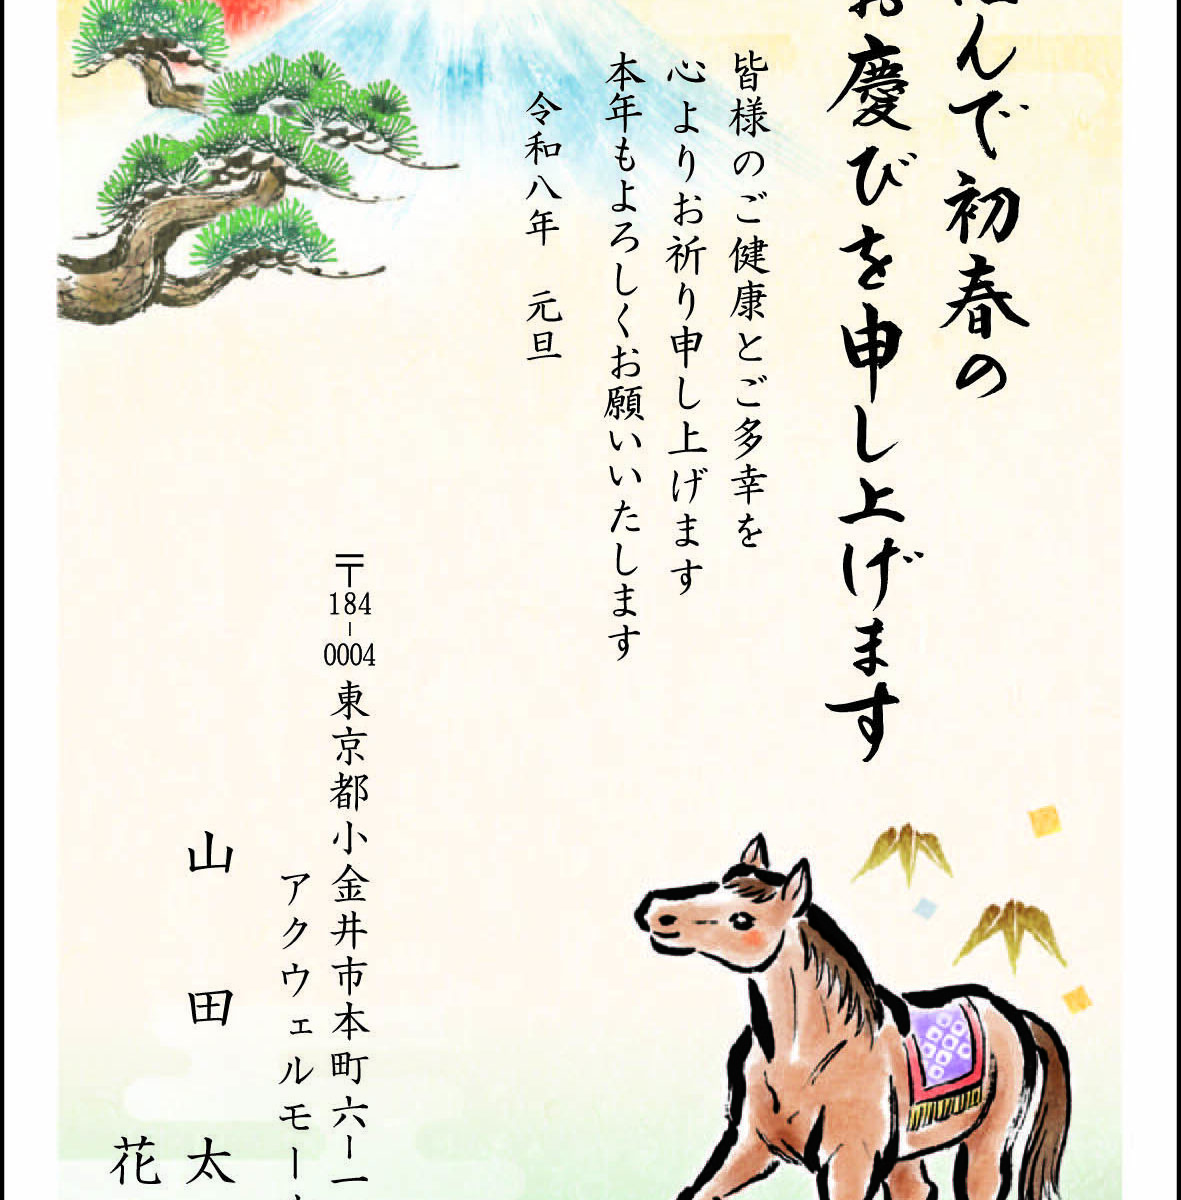 んで初春の
お慶びを申し上げます
皆様のご健康とご多幸を
心よりお祈り申し上げます
本年もよろしくお願いいたします
令和八年 元旦
〒184-0004 東京都小金井市本町六ー一
アクウェルモー
山田 太
花